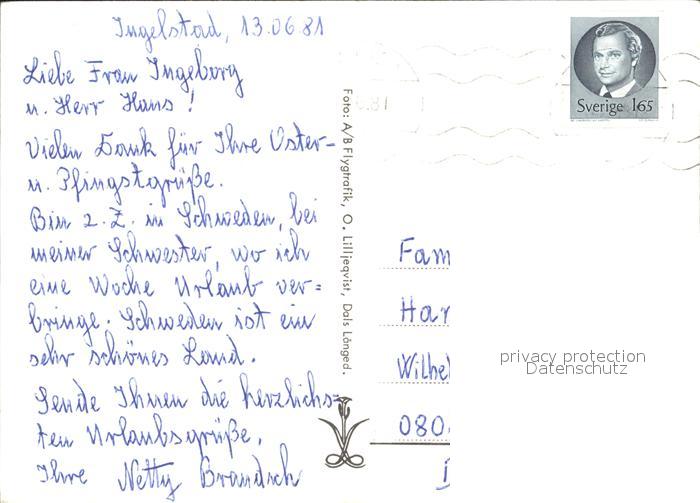 Ingelstad, 13.06.81
Liebe Frau Ingeborg
u. Herr Hans!
Vielen Dank für Ihre Oster-
u. Pfingstgrüße.
Bin z. Z. in Schweden, bei
meiner Schwester, wo ich
eine Woche Urlaub ver=
bringe. Schweden ist ein
sehr schönes Land.
Sende Ihnen die herzlichs=
ten Urlaubsgrüße.
Ihre Netty Brandsch
Foto: A/B Flygtrafik, O. Lilljeqvist, Dals Långed.
Sverige 165
Fam
Har
Wilhel
080
privacy protection
Datenschutz